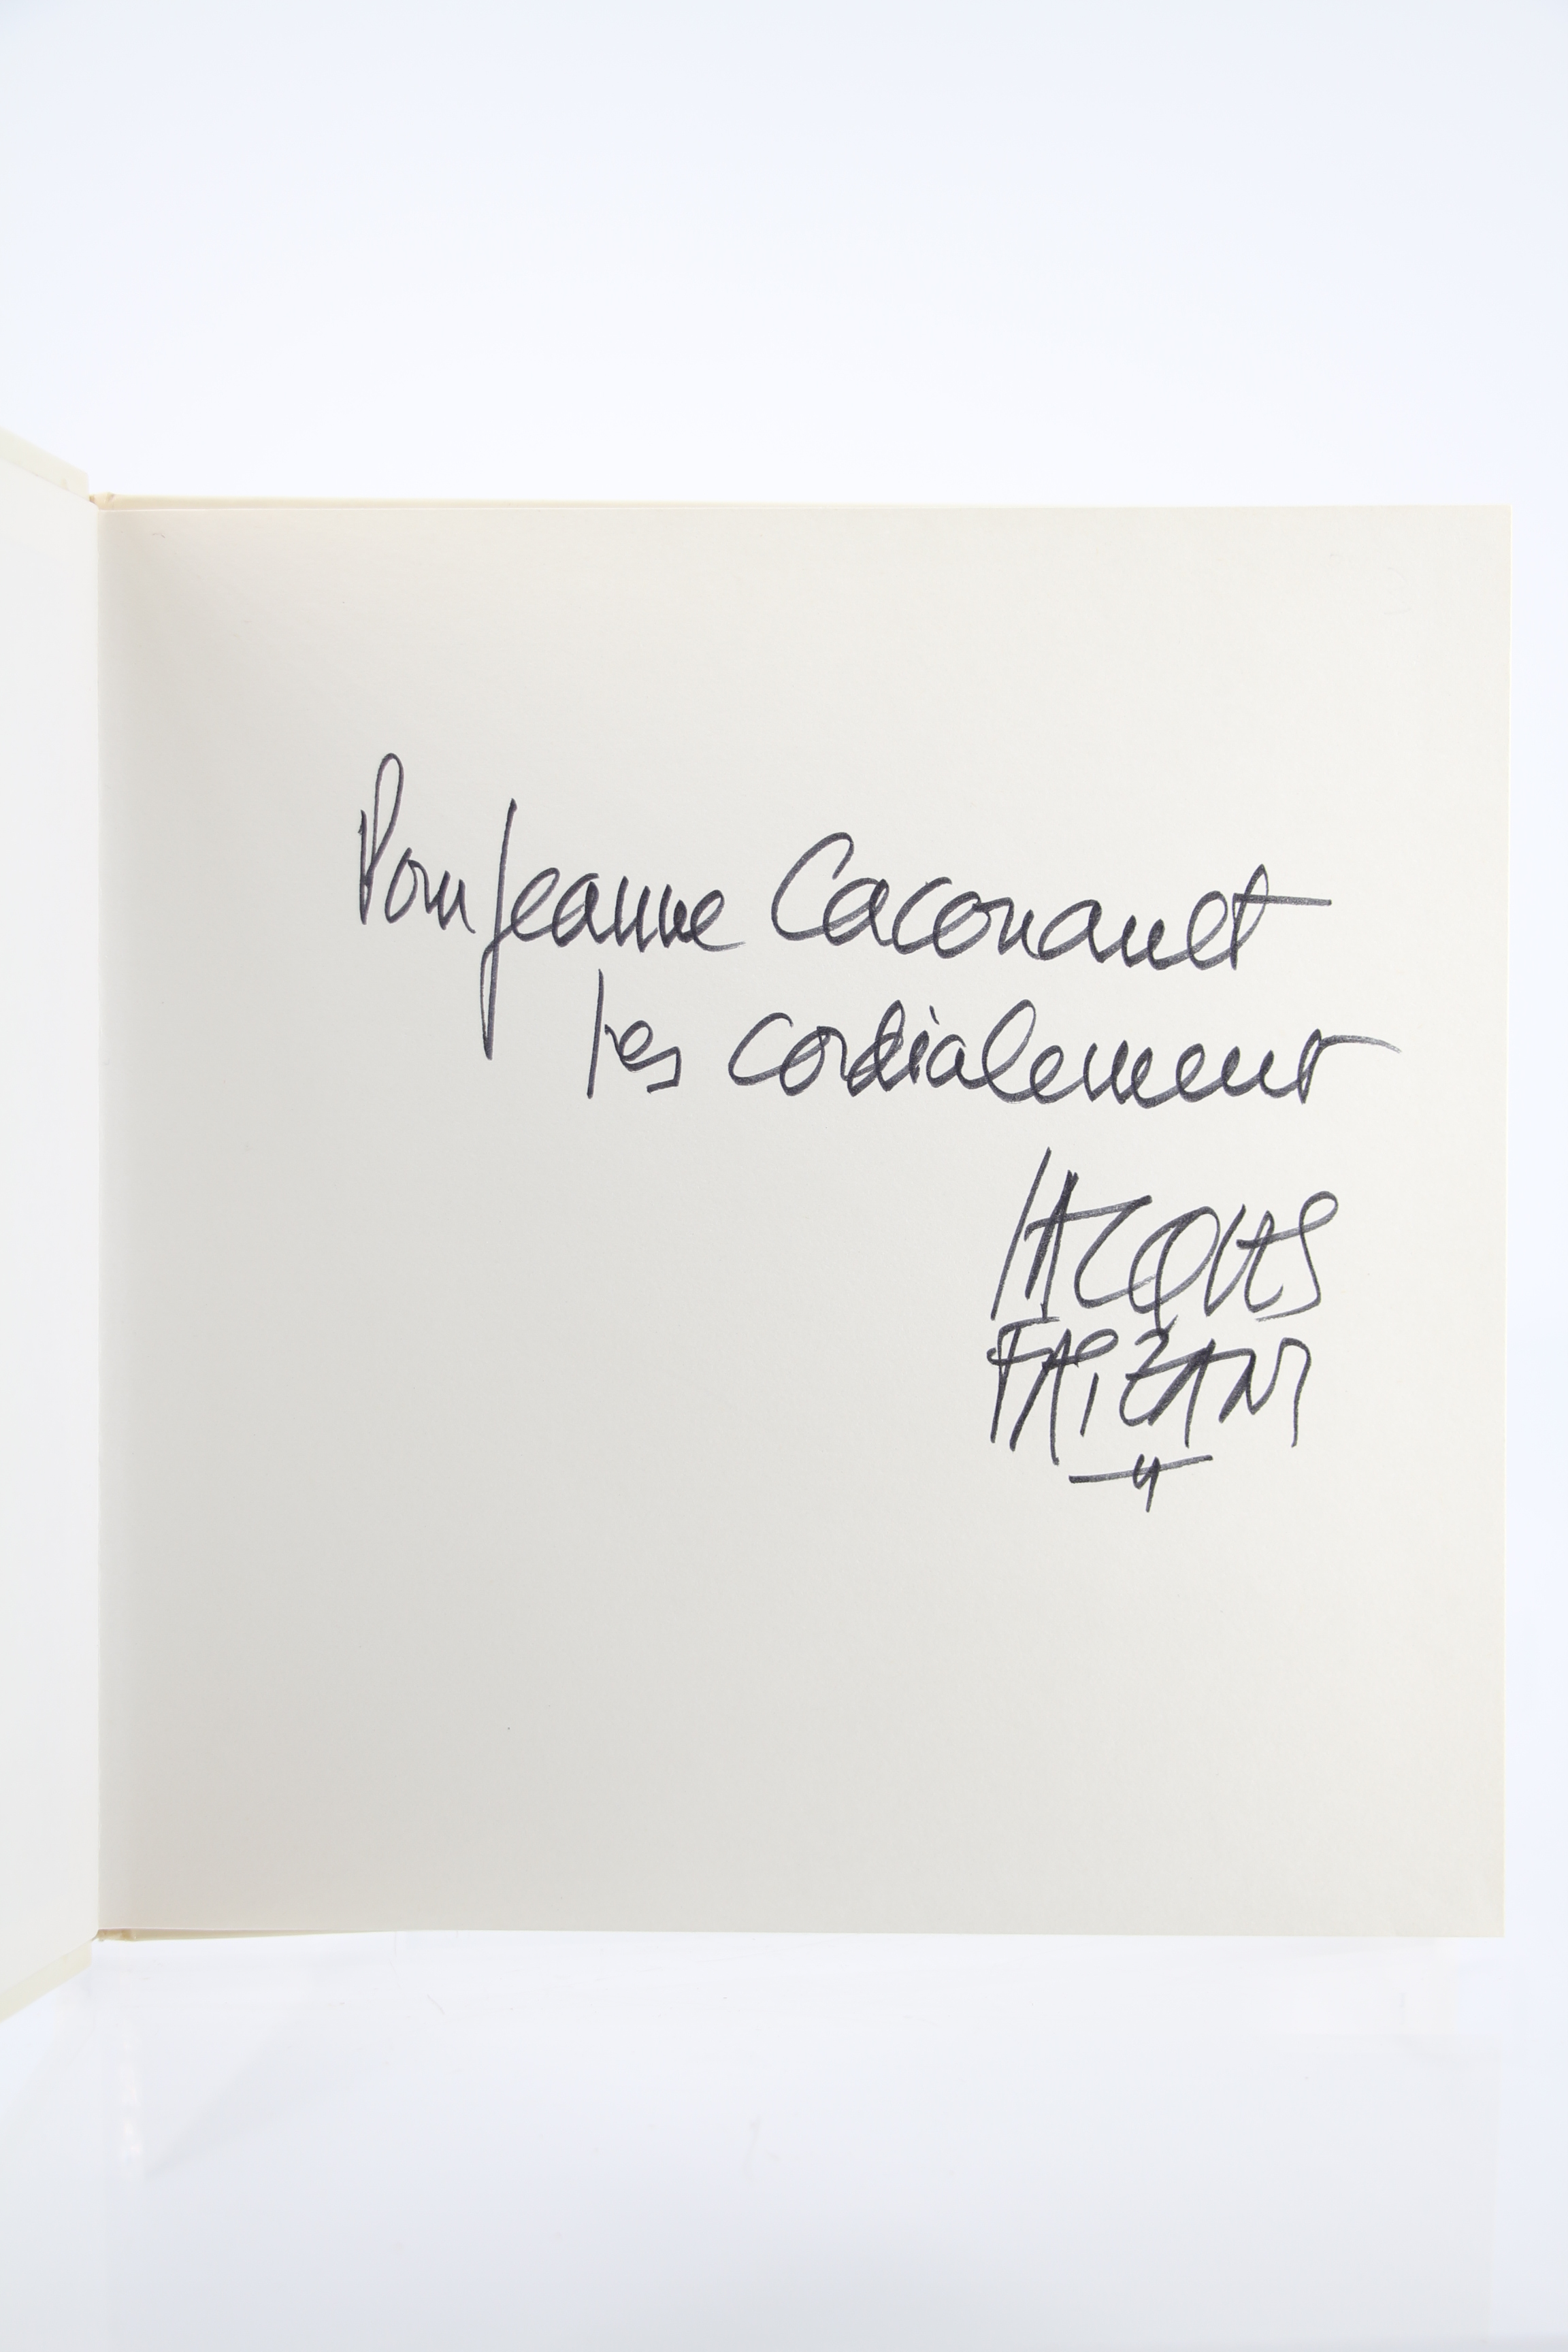 Pour Jeanne Caconault
très cordialement
JACQUES
FAIZANT